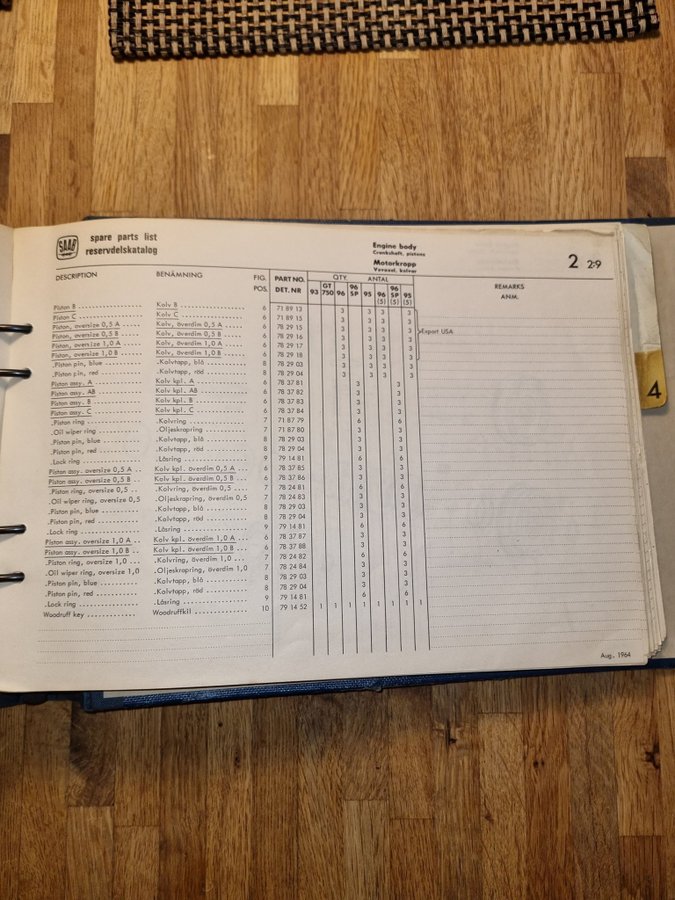 SAAB
spare parts list
reservdelskatalog
Engine body
Crankshaft, pistons
Motorkropp
Vevaxel, kolvar
2 2:9
DESCRIPTION BENÄMNING FIG. POS. PART NO. DET. NR QTY. ANTAL REMARKS ANM.
93 GT 750 96 96 SP 95 96 (5) 96 SP (5) 95 (5)
Piston B Kolv B 6 71 89 12 3 3 3 3
Piston C Kolv C 6 71 89 15 3 3 3 3
Piston, oversize 0,5 A Kolv, överdim 0,5 A 6 78 29 15 3 3 3 3
Piston, oversize 0,5 B Kolv, överdim 0,5 B 6 78 29 16 3 3 3 3 Export USA
Piston, oversize 1,0 A Kolv, överdim 1,0 A 6 78 29 17 3 3 3 3
Piston, oversize 1,0 B Kolv, överdim 1,0 B 6 78 29 18 3 3 3 3
.Piston pin, blue .Kolvtapp, blå 8 78 29 03 3 3 3 3
.Piston pin, red .Kolvtapp, röd 8 78 29 04 3 3 3 3
Piston assy. A Kolv kpl. A 6 78 37 81 3 3
Piston assy. AB Kolv kpl. AB 6 78 37 82 3 3
Piston assy. B Kolv kpl. B 6 78 37 83 3 3
Piston assy. C Kolv kpl. C 6 78 37 84 3 3
.Piston ring .Kolvring 7 71 87 79 6 6
.Oil wiper ring .Oljeskrapring 7 71 87 80 3 3
.Piston pin, blue .Kolvtapp, blå 8 78 29 03 3 3
.Piston pin, red .Kolvtapp, röd 8 78 29 04 3 3
.Lock ring .Låsring 9 79 14 81 6 6
Piston assy. oversize 0,5 A Kolv kpl. överdim 0,5 A 6 78 37 85 3 3
Piston assy. oversize 0,5 B Kolv kpl. överdim 0,5 B 6 78 37 86 3 3
.Piston ring, oversize 0,5 .Kolvring, överdim 0,5 7 78 24 81 6 6
.Oil wiper ring, oversize 0,5 .Oljeskrapring, överdim 0,5 7 78 24 83 3 3
.Piston pin, blue .Kolvtapp, blå 8 78 29 03 3 3
.Piston pin, red .Kolvtapp, röd 8 78 29 04 3 3
.Lock ring .Låsring 9 79 14 81 6 6
Piston assy. oversize 1,0 A Kolv kpl. överdim 1,0 A 6 78 37 87 3 3
Piston assy. oversize 1,0 B Kolv kpl. överdim 1,0 B 6 78 37 88 3 3
.Piston ring, oversize 1,0 .Kolvring, överdim 1,0 7 78 24 82 6 6
.Oil wiper ring, oversize 1,0 .Oljeskrapring, överdim 1,0 7 78 24 84 3 3
.Piston pin, blue .Kolvtapp, blå 8 78 29 03 3 3
.Piston pin, red .Kolvtapp, röd 8 78 29 04 3 3
.Lock ring .Låsring 9 79 14 81 6 6
Woodruff key Woodruffkil 10 79 14 52 1 1 1 1 1 1 1 1
Aug. 1964
4